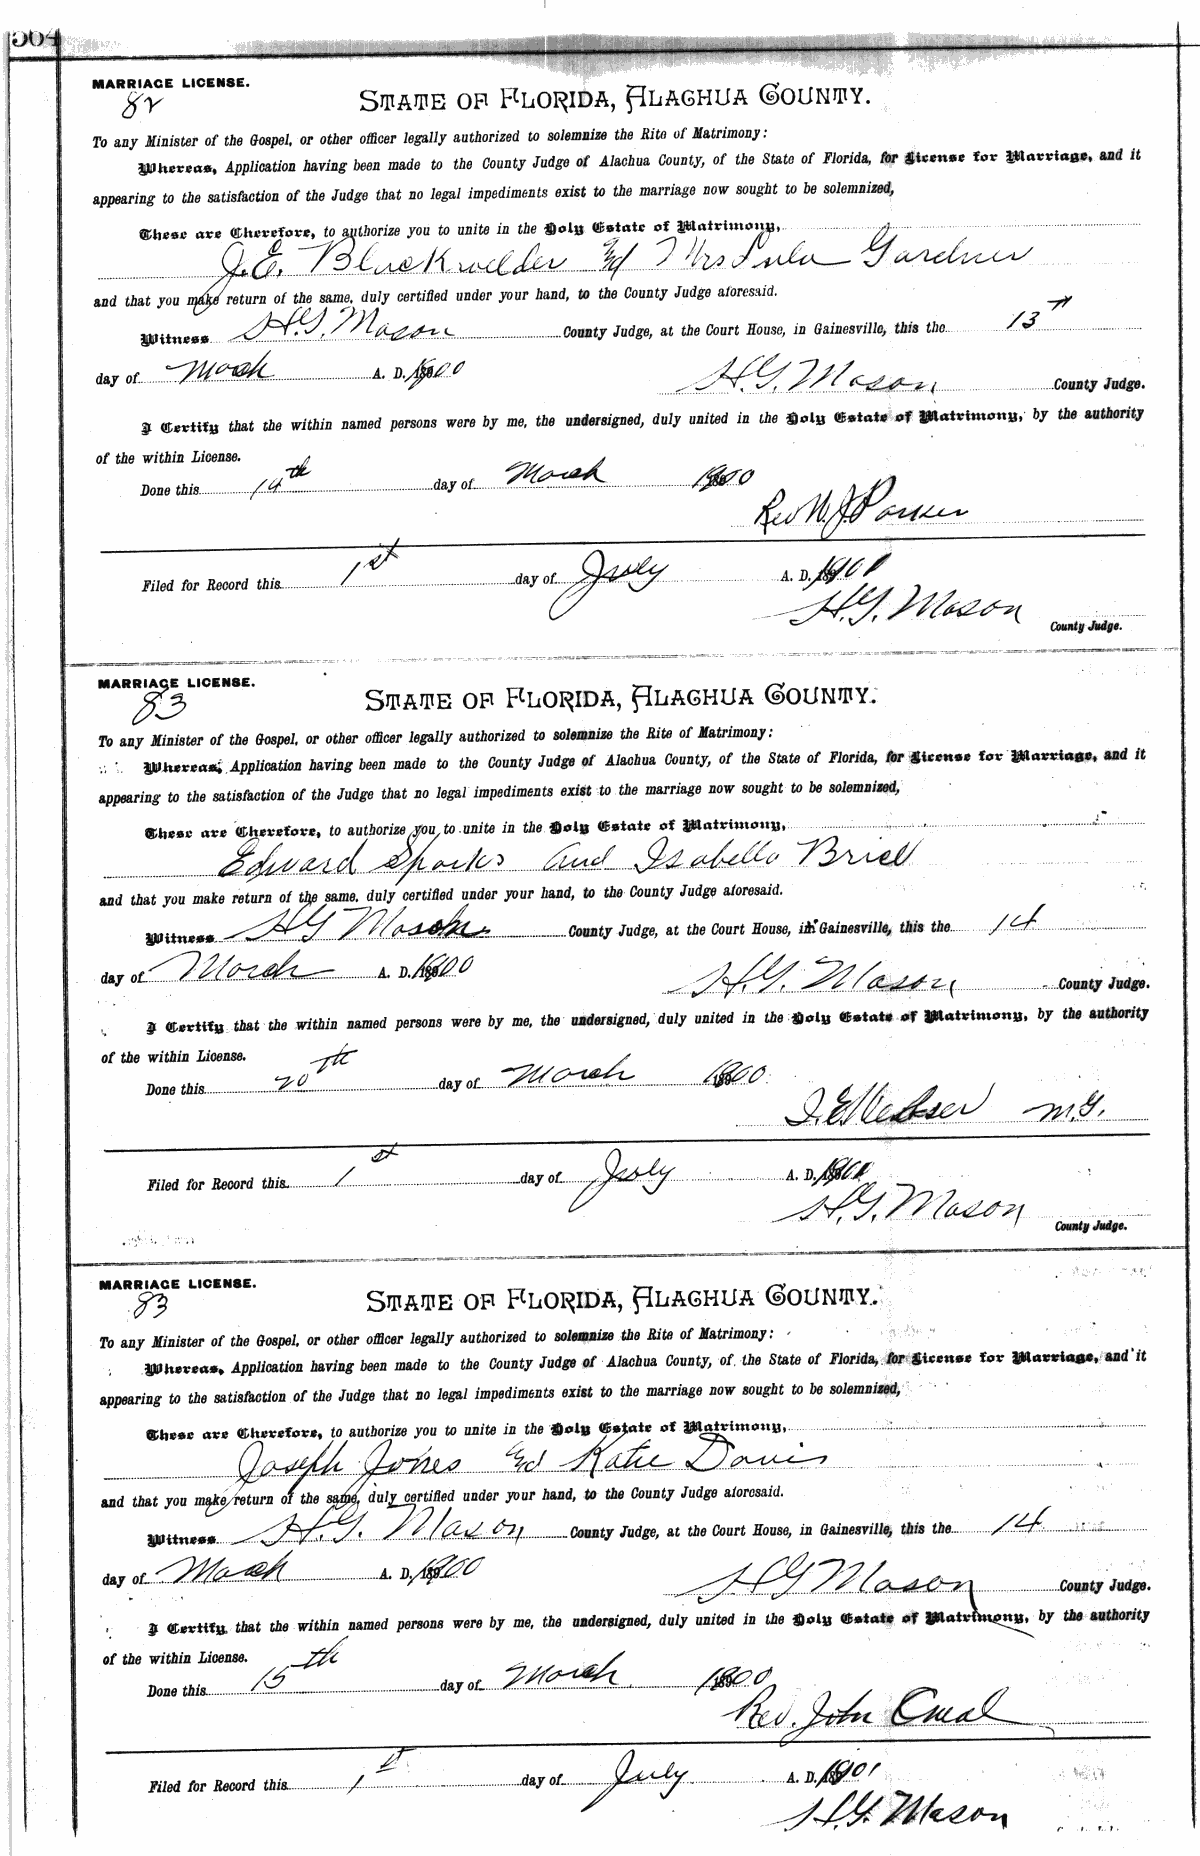 564
MARRIAGE LICENSE.
82
STATE OF FLORIDA, ALACHUA COUNTY.
To any Minister of the Gospel, or other officer legally authorized to solemnize the Rite of Matrimony:
Whereas, Application having been made to the County Judge of Alachua County, of the State of Florida, for License for Marriage, and it
appearing to the satisfaction of the Judge that no legal impediments exist to the marriage now sought to be solemnized,
These are Therefore, to authorize you to unite in the Holy Estate of Matrimony,
J.E. Blackwelder & Mrs Lula Gardner
and that you make return of the same, duly certified under your hand, to the County Judge aforesaid.
Witness H.G. Mason County Judge, at the Court House, in Gainesville, this the 13th
day of March A. D. 1900 H.G. Mason County Judge.
I Certify that the within named persons were by me, the undersigned, duly united in the Holy Estate of Matrimony, by the authority
of the within License.
Done this 14th day of March 1900
Rev W. J. Parker
Filed for Record this 1st day of July A. D. 1901
H.G. Mason
County Judge.
MARRIAGE LICENSE.
83
STATE OF FLORIDA, ALACHUA COUNTY.
To any Minister of the Gospel, or other officer legally authorized to solemnize the Rite of Matrimony:
Whereas, Application having been made to the County Judge of Alachua County, of the State of Florida, for License for Marriage, and it
appearing to the satisfaction of the Judge that no legal impediments exist to the marriage now sought to be solemnized,
These are Therefore, to authorize you to unite in the Holy Estate of Matrimony,
Edward Sparks and Isabella Brill
and that you make return of the same, duly certified under your hand, to the County Judge aforesaid.
Witness H G Mason County Judge, at the Court House, in Gainesville, this the 14
day of March A. D. 1900 H.G. Mason County Judge.
I Certify that the within named persons were by me, the undersigned, duly united in the Holy Estate of Matrimony, by the authority
of the within License.
Done this 20th day of March 1900
M.G.
Filed for Record this 1st day of July A. D. 1901
H.G. Mason
County Judge.
MARRIAGE LICENSE.
83
STATE OF FLORIDA, ALACHUA COUNTY.
To any Minister of the Gospel, or other officer legally authorized to solemnize the Rite of Matrimony:
Whereas, Application having been made to the County Judge of Alachua County, of the State of Florida, for License for Marriage, and it
appearing to the satisfaction of the Judge that no legal impediments exist to the marriage now sought to be solemnized,
These are Therefore, to authorize you to unite in the Holy Estate of Matrimony,
Joseph Jones & Katie Davis
and that you make return of the same, duly certified under your hand, to the County Judge aforesaid.
Witness H.G. Mason County Judge, at the Court House, in Gainesville, this the 14
day of March A. D. 1900 H G Mason County Judge.
I Certify that the within named persons were by me, the undersigned, duly united in the Holy Estate of Matrimony, by the authority
of the within License.
Done this 15th day of March 1900
Rev. John
Filed for Record this 1st day of July A. D. 1901
H.G. Mason